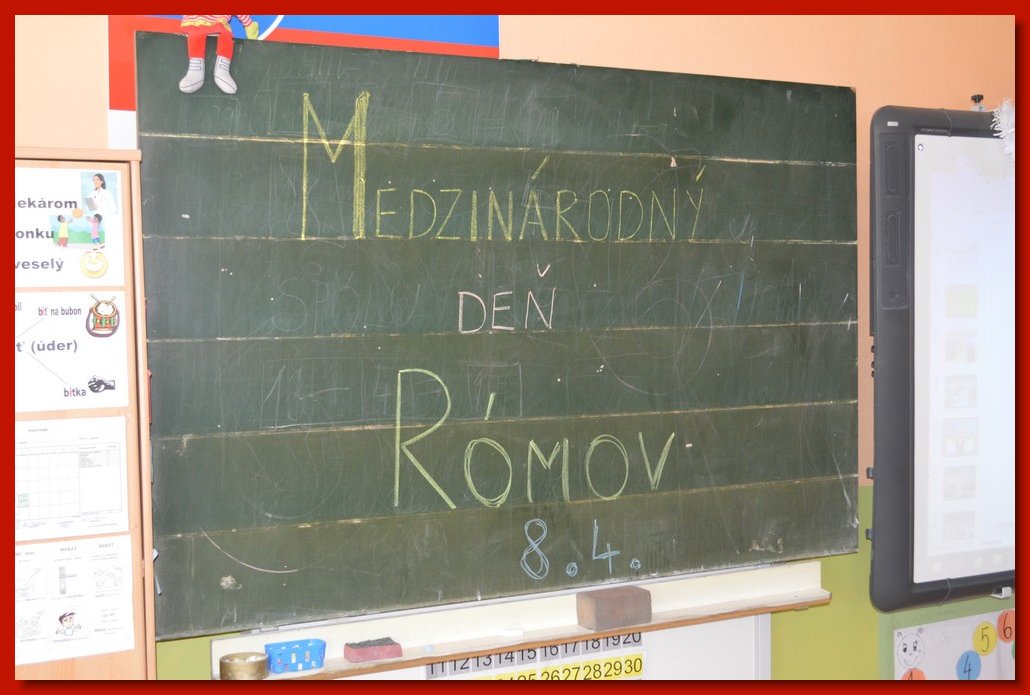 MEDZINÁRODNÝ
DEŇ
RÓMOV
8.4.
ekárom
onku
veselý
biť na bubon
ť (úder)
bitka
11 12 13 14 15 16 17 18 19 20
25 26 27 28 29 30
4
5
6